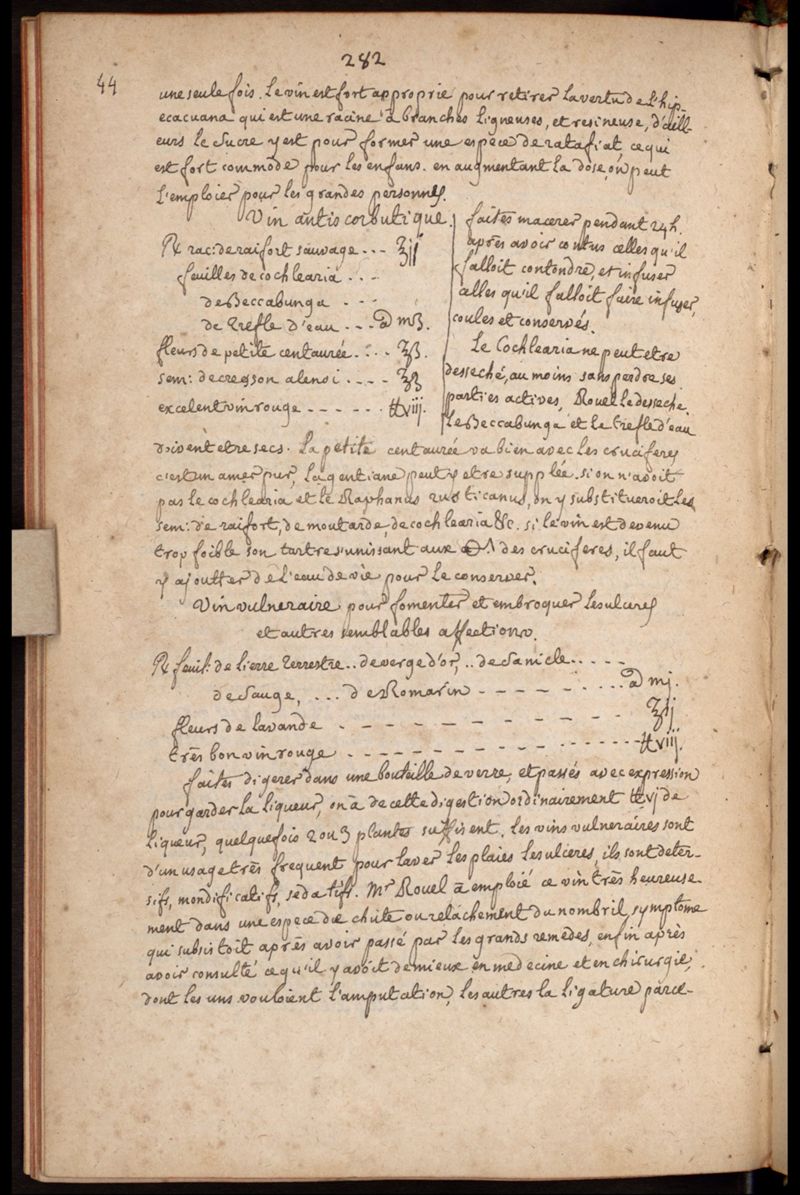 282
44
une seule fois. Le vin est fort approprie pour retirer la vertu de L'hip-
ecacuana qui est une racine à branches Ligneuses, et resineuse, d'aill-
eurs Le Sucre y est pour former une espece de ratafiat, ce qui
est fort commode pour les enfans. en augmentant la dose, on peut
L'emploier pour les grandes personnes.
Vin antiscorbutique.
℞ rac: de raifort sauvage ... ℥ij
feuilles de cochlearia ...
de Beccabunga ...
de Trefle d'eau ... a mß.
fleurs de petite centaurée .... ℥ß.
sem: de cresson alenoi .... ℥ß
excelent vin rouge ------ ℔viij.
faites macerer pendant 24 h.
après avoir contus celles qu'il
falloit contondre, et infuser
celles qu'il falloit faire infuser,
coules et conservés.
Le Cochlearia ne peut etre
desseché, au moins sans perdre ses
parties actives, Rouel le desseche.
Le Beccabunga et le trefle d'eau
doivent etre secs. La petite centaurée va bien avec les cruciferes
c'est un amer pur, la gentiane peut y etre supplée. si on n'avoit
pas le cochlearia et le Raphanus rusticanus, on y substitueroit les
sem: de raifort, de moutarde, de cochlearia &c. si le vin est devenu
trop foible son tartre s'unissant aux des cruciferes, il faut
y ajoutter de l'eau de vie pour le conserver.
Vin vulneraire pour fomenter et embroquer les ulceres
et autres semblables affections.
℞ feuil: de Lierre Terrestre .. de verge d'or, .. de Sanicle .....
de Sauge, ... de Romarin ------.... a mj.
fleurs de lavande - - - - - - - - - ℥ij
très bon vin rouge - - - - - - - - ...... ℔viij.
faites digerer dans une bouteille de verre, et passés avec expression
pour garder la liqueur, on à de cette digestion ordinairement ℔vj de
liqueur, quelquefois 2 ou 3 plantes suffisent. les vins vulneraires sont
d'un usage très frequent pour laver les plaies les ulceres, ils sont deter-
sifs, mondificatifs, sedatifs. Mr Rouel à emploié ce vin très heureuse-
ment dans une espece de chute ou relâchement du nombril, symptome
qui subsistoit après avoir passé par les grands remèdes, enfin après
avoir consulté ce qu'il y avoit de mieux en medecine et en chirurgie,
dont les uns vouloient l'amputation, les autres la ligature parce-